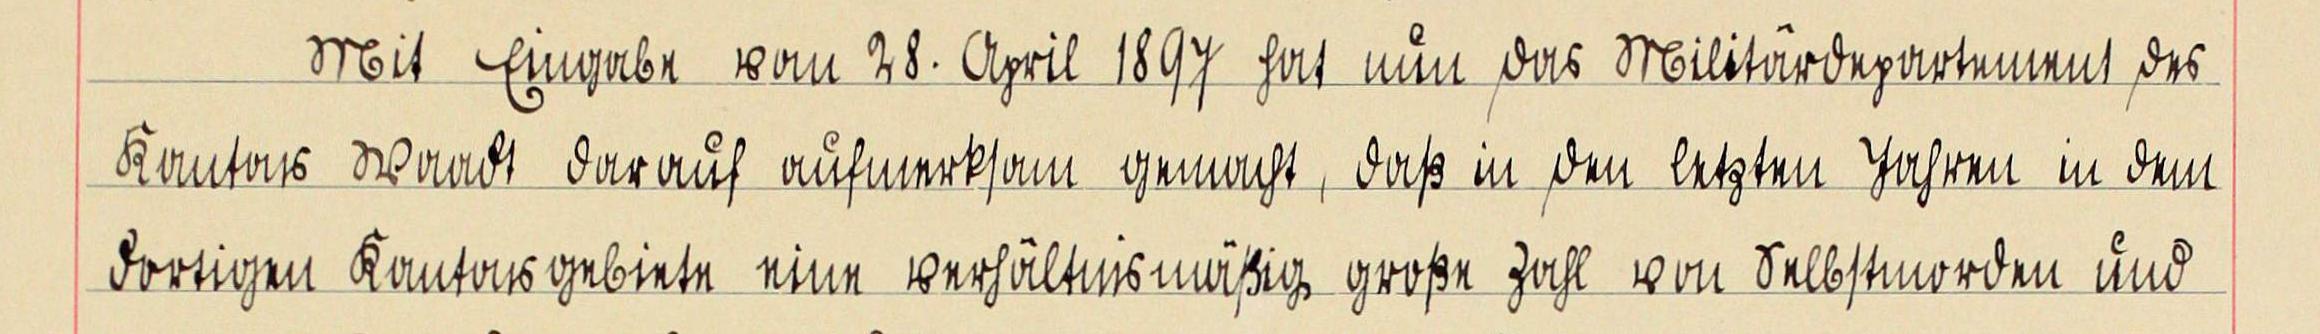 Mit Eingabe vom 28. April 1897 hat nun das Militärdepartement des
Kantons Waadt darauf aufmerksam gemacht, daß in den letzten Jahren in dem
dortigen Kantonsgebiete eine verhältnismäßig große Zahl von Selbstmorden und